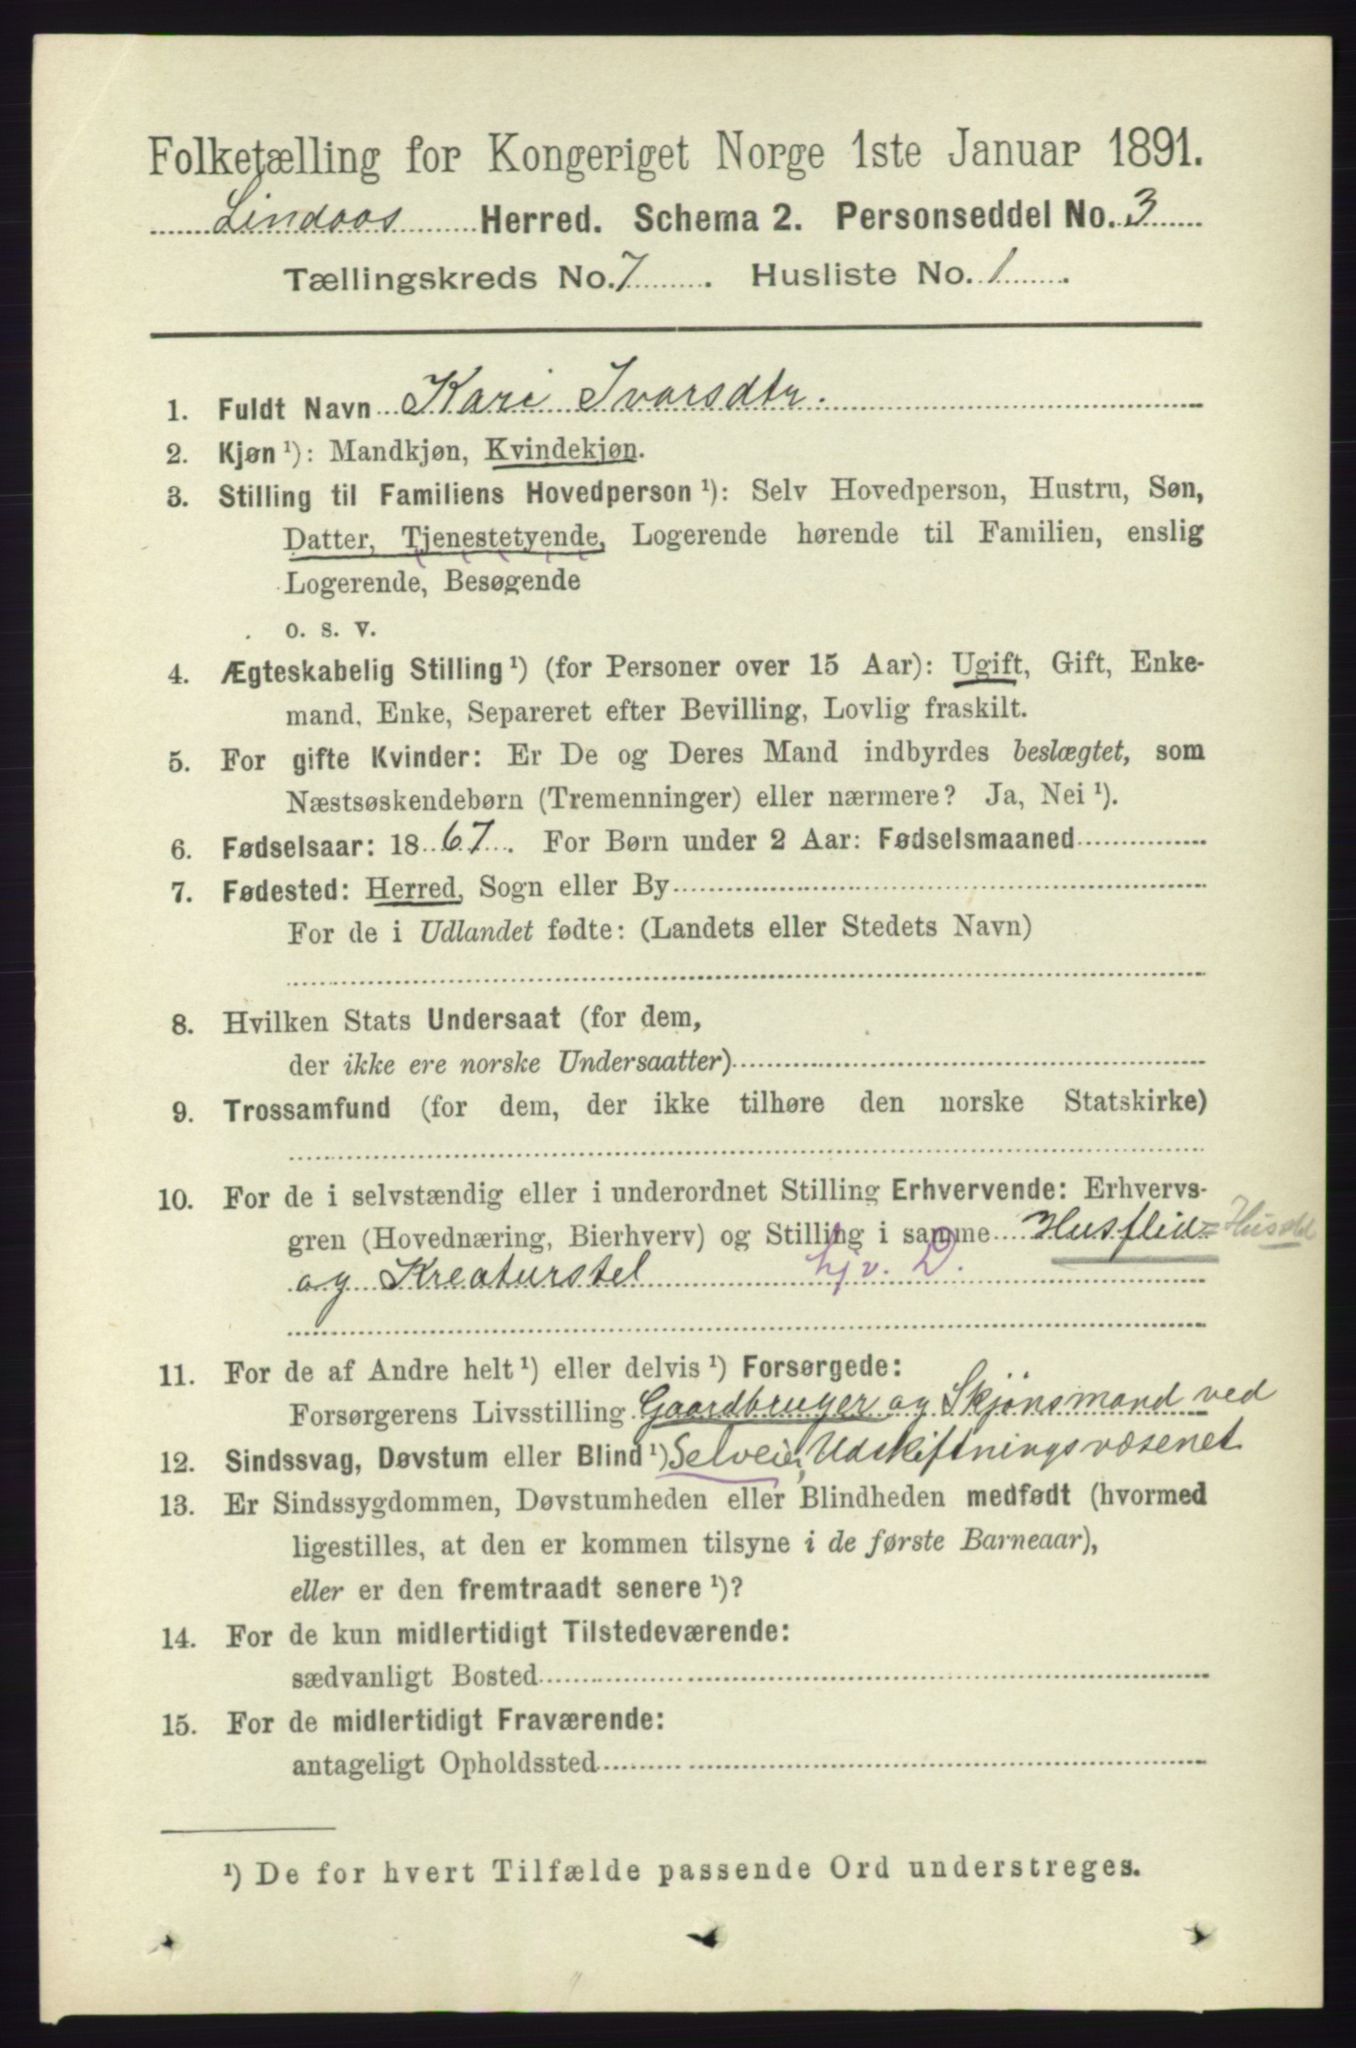 Folketælling for Kongeriget Norge 1ste Januar 1891.
Lindaas Herred. Schema 2. Personseddel No. 3
Tællingskreds No. 7. Husliste No. 1.
1. Fuldt Navn Kari Ivarsdtr.
2. Kjøn ¹): Mandkjøn, Kvindekjøn.
3. Stilling til Familiens Hovedperson ¹): Selv Hovedperson, Hustru, Søn,
Datter, Tjenestetyende, Logerende hørende til Familien, enslig
Logerende, Besøgende
o. s. v.
4. Ægteskabelig Stilling ¹) (for Personer over 15 Aar): Ugift, Gift, Enke-
mand, Enke, Separeret efter Bevilling, Lovlig fraskilt.
5. For gifte Kvinder: Er De og Deres Mand indbyrdes beslægtet, som
Næstsøskendebørn (Tremenninger) eller nærmere? Ja, Nei ¹).
6. Fødselsaar: 1867. For Børn under 2 Aar: Fødselsmaaned
7. Fødested: Herred, Sogn eller By
For de i Udlandet fødte: (Landets eller Stedets Navn)
8. Hvilken Stats Undersaat (for dem,
der ikke ere norske Undersaatter)
9. Trossamfund (for dem, der ikke tilhøre den norske Statskirke)
10. For de i selvstændig eller i underordnet Stilling Erhvervende: Erhvervs-
gren (Hovednæring, Bierhverv) og Stilling i samme Husflid=
og Kreaturstel hjv. D.
11. For de af Andre helt ¹) eller delvis ¹) Forsørgede:
Forsørgerens Livsstilling Gaardbruger og Skjønsmand ved
12. Sindssvag, Døvstum eller Blind ¹) Selveier, Udskiftningsvæsenet
13. Er Sindssygdommen, Døvstumheden eller Blindheden medfødt (hvormed
ligestilles, at den er kommen tilsyne i de første Barneaar),
eller er den fremtraadt senere ¹)?
14. For de kun midlertidigt Tilstedeværende:
sædvanligt Bosted
15. For de midlertidigt Fraværende:
antageligt Opholdssted
¹) De for hvert Tilfælde passende Ord understreges.